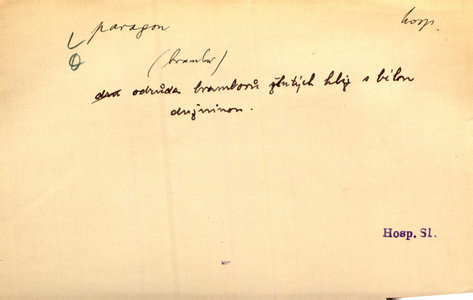 paragon hosp.
(brambor)
odrůda bramborů žlutých hlíz s bílou
dužninou.
Hosp. Sl.